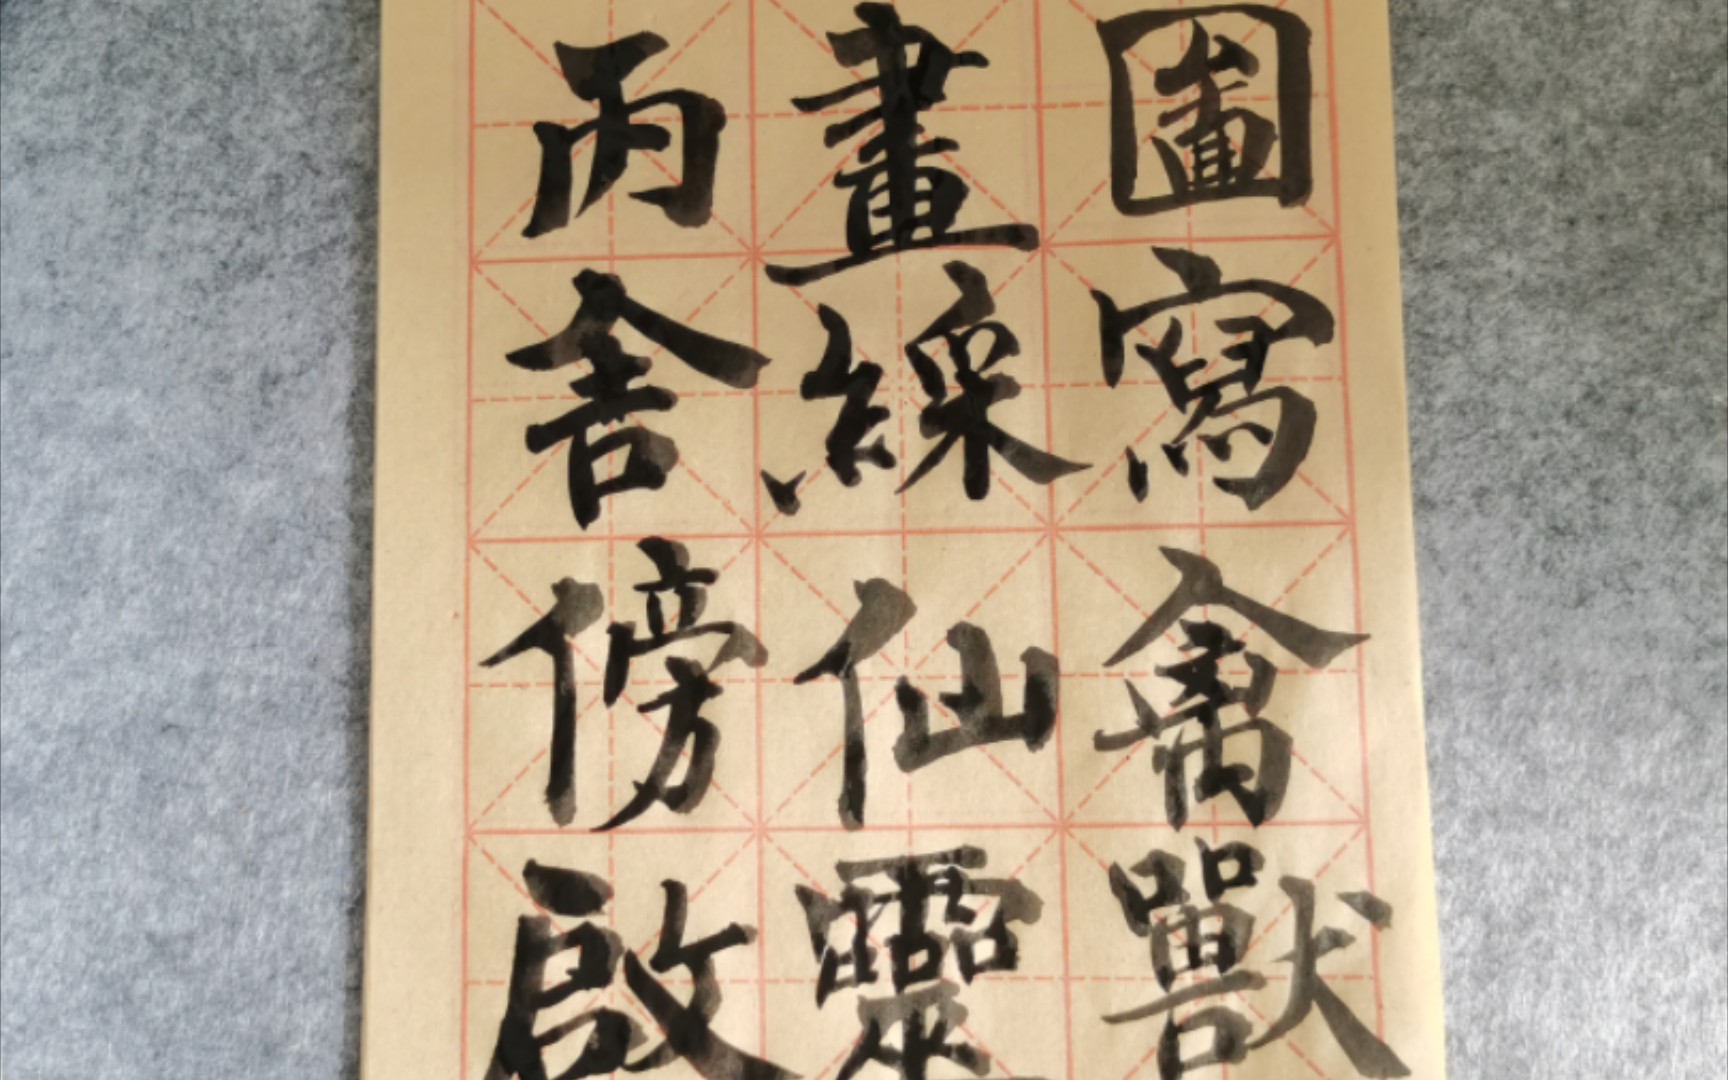 圖寫禽獸
畫綵仙靈
丙舍傍啟